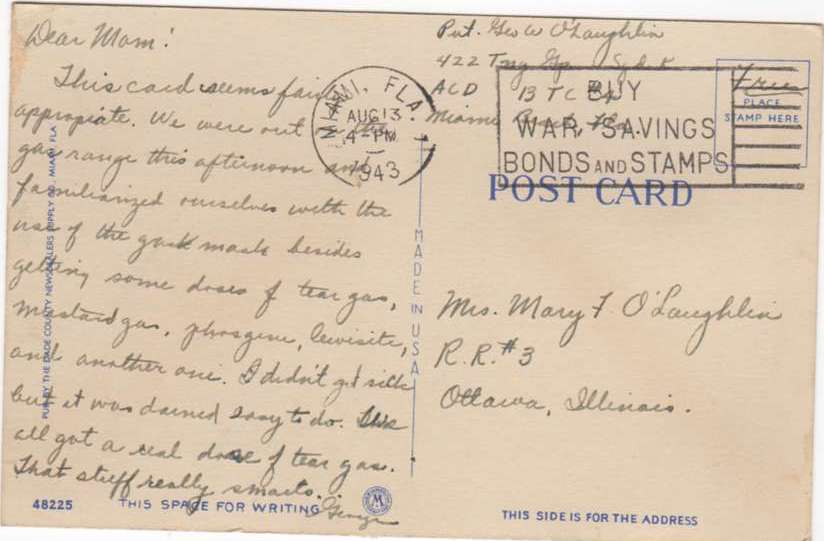 Dear Mom!
This card seems fairly
appropiate. We were out on the
gas range this afternoon and
familiarized ourselves with the
use of the gask mask besides
getting some doses of tear gas,
mustard gas, phosgene, lewisite,
and another one. I didn't get sick
but it was darned easy to do. We
all got a real dose of tear gas.
That stuff really smarts.
George
48225 THIS SPACE FOR WRITING
PUB. BY THE DADE COUNTY NEWSDEALERS SUPPLY CO. MIAMI, FLA
MADE IN USA
Pvt. Geo W O'Laughlin
422 Tng Gp
ACD BTC #4
Miami
MIAMI, FLA.
AUG 13
4-PM
1943
BUY
WAR SAVINGS
BONDS AND STAMPS
Free
PLACE
STAMP HERE
POST CARD
Mrs. Mary F. O'Laughlin
R.R. #3
Ottawa, Illinois.
THIS SIDE IS FOR THE ADDRESS